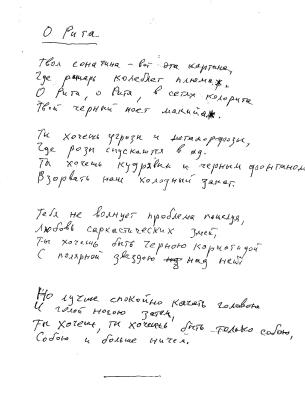 О Рита
Твоя сонатина - вот эта картина,
Где рыцарь колеблет плюмаж.
О Рита, о Рита, в сетях колорита
Твой черный поет макияж.
Ты хочешь угрозы и метаморфозы,
Где розы спускаются в ад.
Ты хочешь кудрявым и черным фонтаном
Взорвать наш холодный закат.
Тебя не волнует проблема
Любовь саркастических змей,
Ты хочешь быть черною
С полярной звездою над ней!
Но лучше спокойно качать головою
И голой ногою затем,
Ты хочешь, ты хочешь быть только собою,
Собою и больше ничем.